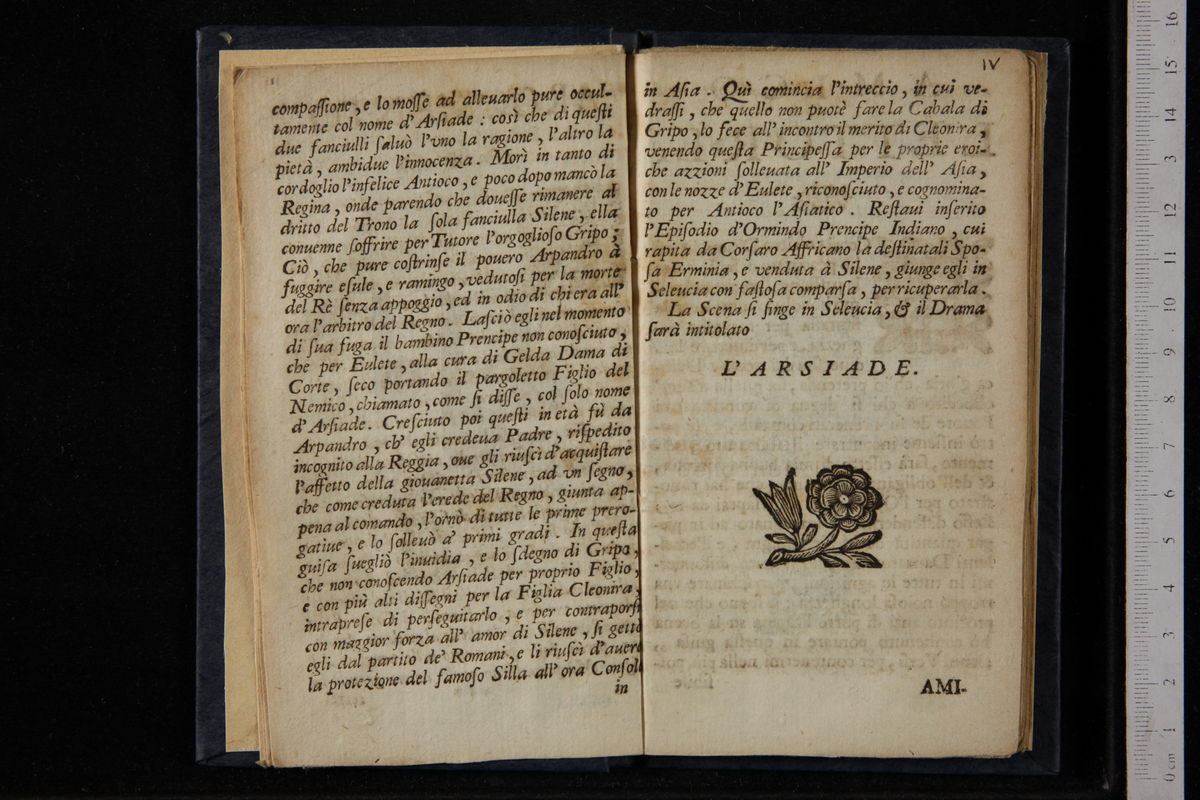 compaſſione, e lo moſſe ad alleuarlo pure occul-
tamente col nome d'Arſiade: così che di queſti
due fanciulli ſaluò l'vno la ragione, l'altro la
pietà, ambidue l'innocenza. Morì in tanto di
cordoglio l'infelice Antioco, e poco dopo mancò la
Regina, onde parendo che doueſſe rimanere al
dritto del Trono la ſola fanciulla Silene, ella
conuenne ſoffrire per Tutore l'orgoglioſo Gripo;
Ciò, che pure coſtrinſe il pouero Arpandro à
fuggire eſule, e ramingo, vedutoſi per la morte
del Rè ſenza appoggio, ed in odio di chi era all'
ora l'arbitro del Regno. Laſciò egli nel momento
di ſua fuga il bambino Prencipe non conoſciuto,
che per Eulete, alla cura di Gelda Dama di
Corte, ſeco portando il pargoletto Figlio del
Nemico, chiamato, come ſi diſſe, col ſolo nome
d'Arſiade. Creſciuto poi queſti in età fù da
Arpandro, ch' egli credeua Padre, riſpedito
incognito alla Reggia, oue gli riuſcì d'acquiſtare
l'affetto della giouanetta Silene, ad vn ſegno,
che come creduta l'erede del Regno, giunta ap-
pena al comando, l'ornò di tutte le prime prero-
gatiue, e lo ſolleuò a' primi gradi. In queſta
guiſa ſuegliò l'inuidia, e lo ſdegno di Gripo,
che non conoſcendo Arſiade per proprio Figlio,
e con più alti diſſegni per la Figlia Cleonira,
intrapreſe di perſeguitarlo, e per contraporſi
con maggior forza all' amor di Silene, ſi gettò
egli dal partito de' Romani, e li riuſcì d'auere
la protezione del famoſo Silla all' ora Conſole
in
IV
in Aſia. Quì comincia l'intreccio, in cui ve-
draſſi, che quello non puotè fare la Cabala di
Gripo, lo fece all' incontro il merito di Cleonira,
venendo queſta Principeſſa per le proprie eroi-
che azzioni ſolleuata all' Imperio dell' Aſia,
con le nozze d'Eulete, riconoſciuto, e cognomina-
to per Antioco l'Aſiatico. Reſtaui inſerito
l'Epiſodio d'Ormindo Prencipe Indiano, cui
rapita da Corſaro Affricano la deſtinatali Spo-
ſa Erminia, e venduta à Silene, giunge egli in
Seleucia con faſtoſa comparſa, per ricuperarla.
La Scena ſi finge in Seleucia, & il Drama
ſarà intitolato
L'ARSIADE.
AMI-
0 cm 1 2 3 4 5 6 7 8 9 10 11 12 13 14 15 16